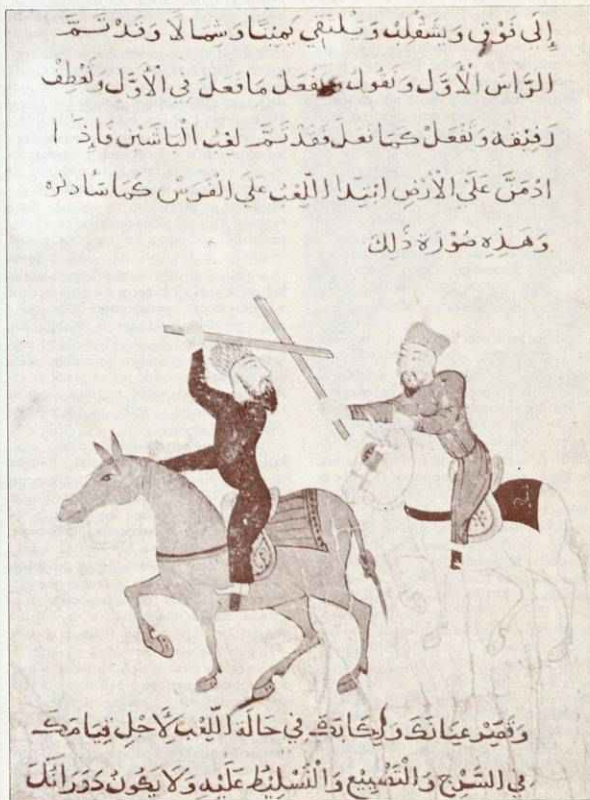 إِلَي فَوْقٍ وَيَشَقْلِبْ وَيَلْتَقِي يَمِينًا وَشِمَالًا وَقَدْ تَمَّ
الرَّاسَ الْأَوَّلِ وَتَقُولُ وَيَفْعَلْ مَا فَعَلَ فِي الْأَوَّلِ وَتَعْطِفْ
رَفِيقَهُ وَتَفْعَلْ كَمَا فَعَلَ فَقَدْ تَمَّ لِعْبُ الْبَاشَيْنِ فَإِذَا
ادْمَنَ عَلَي الْأَرْضِ ابْتَدَا اللَّعِبُ عَلَي الْفَرَسْ كَمَا
وَهَذِهِ صُوْرَة ذَلِكَ
وَقَصِّرْ عِنَانَكَ وَرِكَابَكَ فِي حَالَة اللَّعِبْ لِأَجْلِ قِيَامَكَ
فِي السَّرْجِ وَالتَّسْلِيْطُ عَلَيْهِ وَلَا يَكُونُ دَوَرَانَكَ